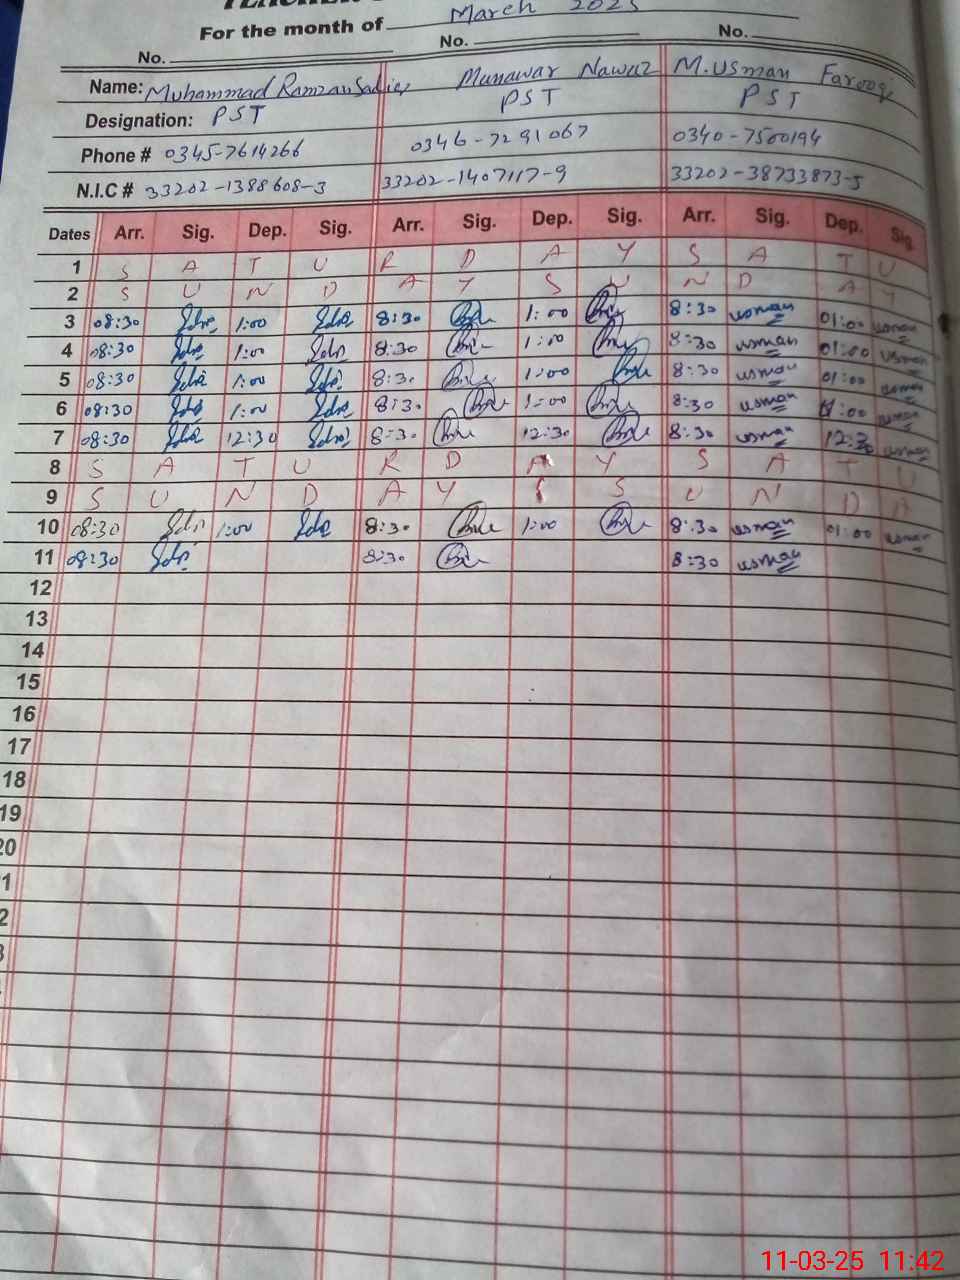 For the month of March 2025
No. No. No.
Name: Muhammad Ramzan Sadiq Munawar Nawaz M. Usman Farooq
Designation: PST PST PST
Phone # 0345-7614266 0346-7291067 0340-7500194
N.I.C # 33202-1388608-3 33202-1407117-9 33202-38733873-5
Dates Arr. Sig. Dep. Sig. Arr. Sig. Dep. Sig. Arr. Sig. Dep. Sig.
1 S A T U R D A Y S A T U
2 S U N D A Y S U N D A Y
3 08:30 1:00 8:30 1:00 8:30 usman 01:00 usman
4 08:30 1:00 8:30 1:00 8:30 usman 01:00 usman
5 08:30 1:00 8:30 1:00 8:30 usman 01:00 usman
6 08:30 1:00 8:30 1:00 8:30 usman 1:00 usman
7 08:30 12:30 8:30 12:30 8:30 usman 12:30 usman
8 S A T U R D A Y S A T U
9 S U N D A Y S U N D A
10 08:30 1:00 8:30 1:00 8:30 usman 01:00 usman
11 08:30 8:30 8:30 usman
12
13
14
15
16
17
18
19
20
1
2
3
11-03-25 11:42